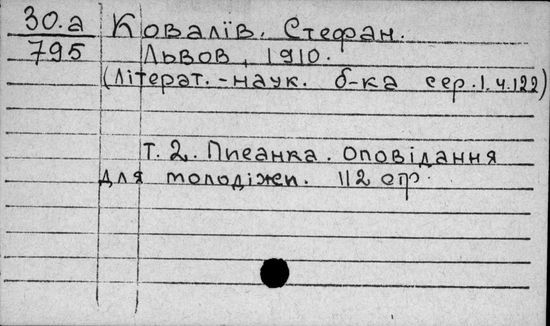 30.а Ковалів, Стефан.
795 Львов, 1910.
(Літерат.-наук. б-ка сер.1.ч.122)
т. 2. Писанка. Оповідання
для молодіжи. 112 стр.